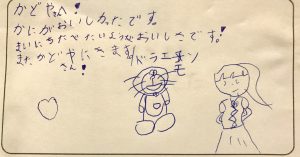 かどやさんへ!
かにがおいしかったです。
まいにちたべたいようなおいしさです。!
またかどやにきます!
さん!
ドラエモン